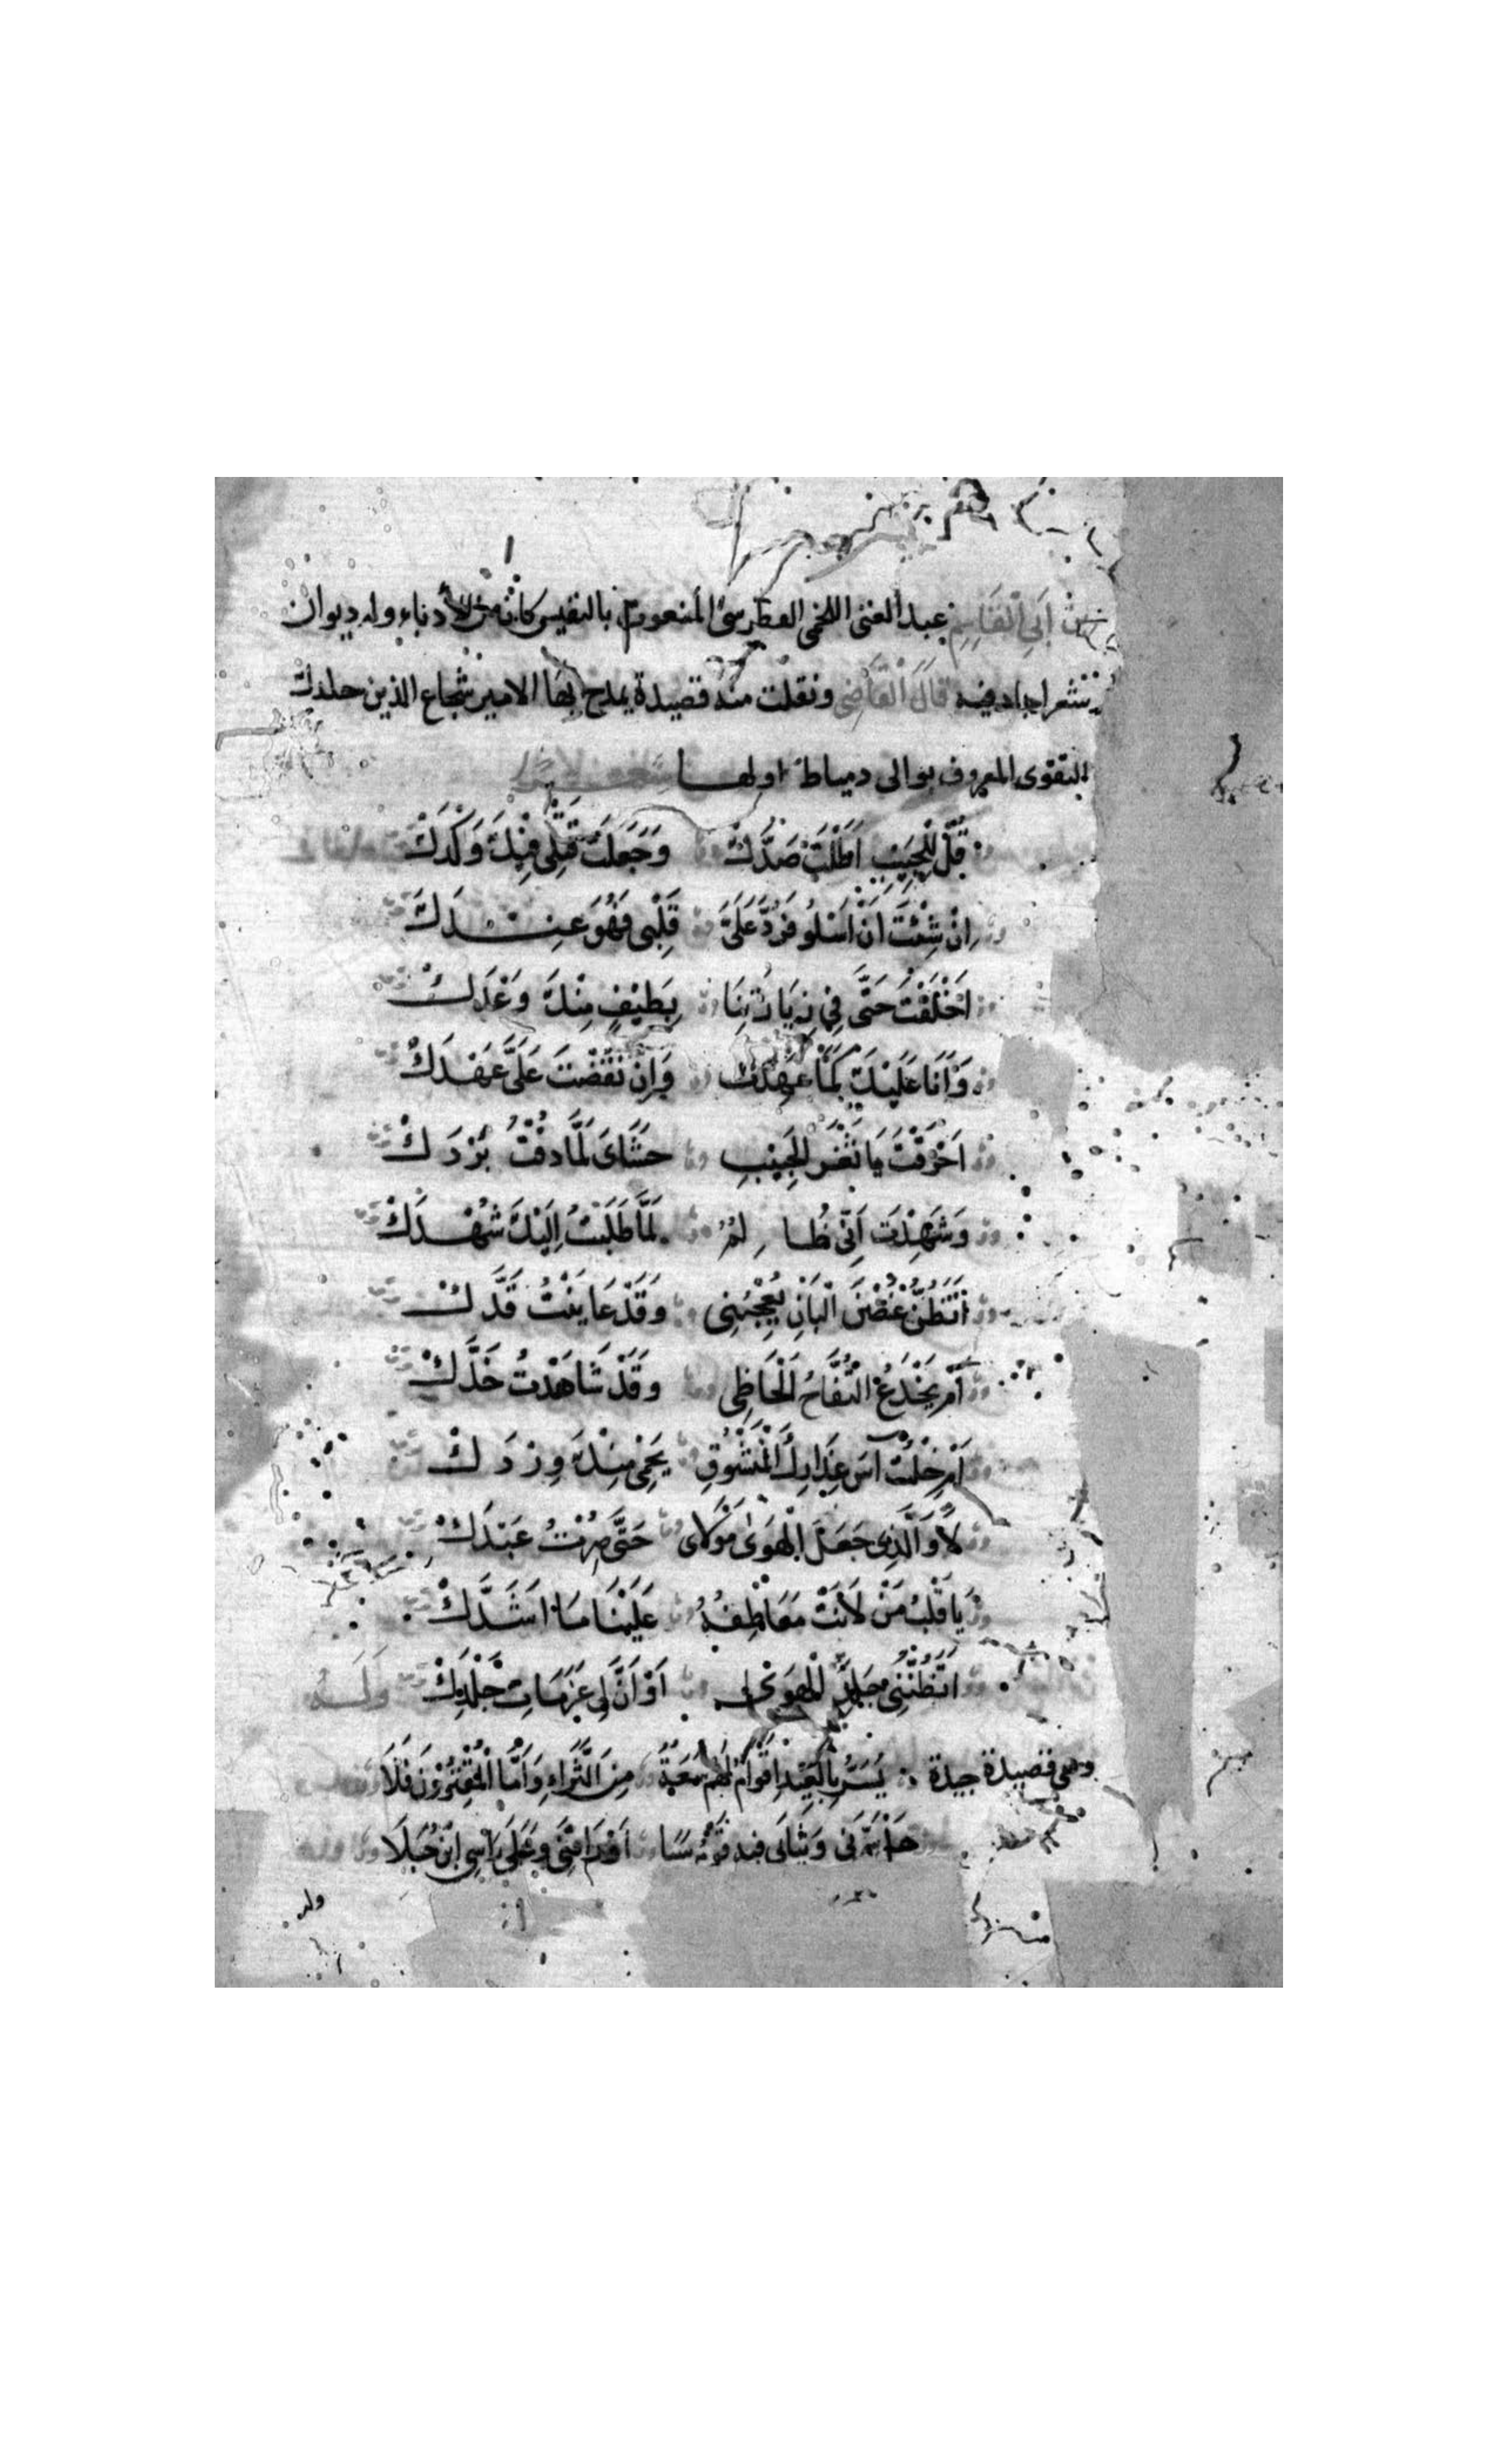 بن أبي القاسم عبد الغني اللخمي القطرسي المنعوت بالنفيس كان من الأدباء وله ديوان
شعر اجاد فيه قال القاضي ونقلت منه قصيدة يمدح بها الامير شجاع الدين جلدك
التقوى المعروف بوالى دمياط اولها
قُلْ لِلْحَبِيبِ اَطَلْتَ صَدَّكْ وَجَعَلْتَ قَتْلِى فِيْكَ وَكْدَكْ
اِنْ شِئْتَ اَنْ اَسْلُو فَرُدَّ عَلَىَّ قَلْبِى فَهُوَ عِنْدَكَ
اَخْلَفْتَ حَتَّى فِي زِيَارَتِنَا بِطَيْفٍ مِنْكَ وَعْدَكْ
وَاَنَا عَلَيْكَ كَمَا عَهِدْتَ وَاِنْ نَقَضْتَ عَلَىَّ عَهْدَكْ
اَحْرَقْتَ يَا ثَغْرَ الحَبِيْبِ حَشَاىَ لَمَّا ذُقْتُ بَرْدَكْ
وَشَهِدْتَ اَنِّى ظَالِمٌ لَمَّا طَلَبْتُ اِلَيْكَ شَهْدَكْ
اَتَظُنُّ غُصْنَ الْبَانِ يُعْجِبُنِى وَقَدْ عَايَنْتُ قَدَّكْ
اَمْ يَخْدَعُ التُّفَّاحُ اَلْحَاظِى وَقَدْ شَاهَدْتُ خَدَّكْ
اَمْ خِلْتَ آسَ عِذَارِكَ الْمَنْشُوقِ يَحْمِى مِنْكَ وَرْدَكْ
لَا وَالَّذِى جَعَلَ الْهَوَى مَوْلَاى حَتَّى صِرْتُ عَبْدَكْ
يَا قَلْبُ مَنْ لَانَتْ مَعَاطِفُهُ عَلَيْنَا مَا اَشَدَّكْ
اَتَظُنُّنِى جَلْدَ الْهَوَى اَوْ اَنَّ لِى عَزَمَاتِ جَلْدِكْ وَلَـهُ
وهى قصيدة جيدة يُسَرُّ بِالْعِيْدِ اَقْوَامٌ لَهُمْ سَعَةٌ مِنَ الثَّرَاءِ وَاَمَّا الْمُقْتِرُوْنَ فَلَا
هَلْ سَرَّنِى وَثِيَابِى فيه قَوْمُ سَبَا اَوْ رَاقَنِى وَعَلَى رَأْسِى ابْنُ جَلَا
وله